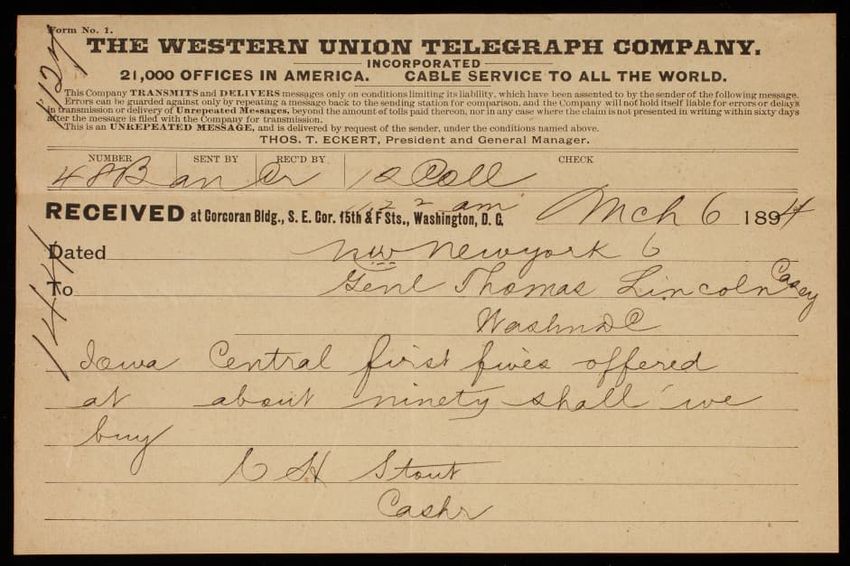 Form No. 1.
THE WESTERN UNION TELEGRAPH COMPANY.
INCORPORATED
21,000 OFFICES IN AMERICA. CABLE SERVICE TO ALL THE WORLD.
This Company TRANSMITS and DELIVERS messages only on conditions limiting its liability, which have been assented to by the sender of the following message.
Errors can be guarded against only by repeating a message back to the sending station for comparison, and the Company will not hold itself liable for errors or delays
in transmission or delivery of Unrepeated Messages, beyond the amount of tolls paid thereon, nor in any case where the claim is not presented in writing within sixty days
after the message is filed with the Company for transmission.
This is an UNREPEATED MESSAGE, and is delivered by request of the sender, under the conditions named above.
THOS. T. ECKERT, President and General Manager.
NUMBER SENT BY REC'D BY CHECK
48B an Cr 10 Coll
RECEIVED at Corcoran Bldg., S. E. Cor. 15th & F Sts., Washington, D. C. am Mch 6 1894
Dated Newyork 6
To Genl Thomas Lincoln Casey
Washn DC
Iowa Central first fives offered
at about ninety shall we
buy
C H Stout
Cashr
144